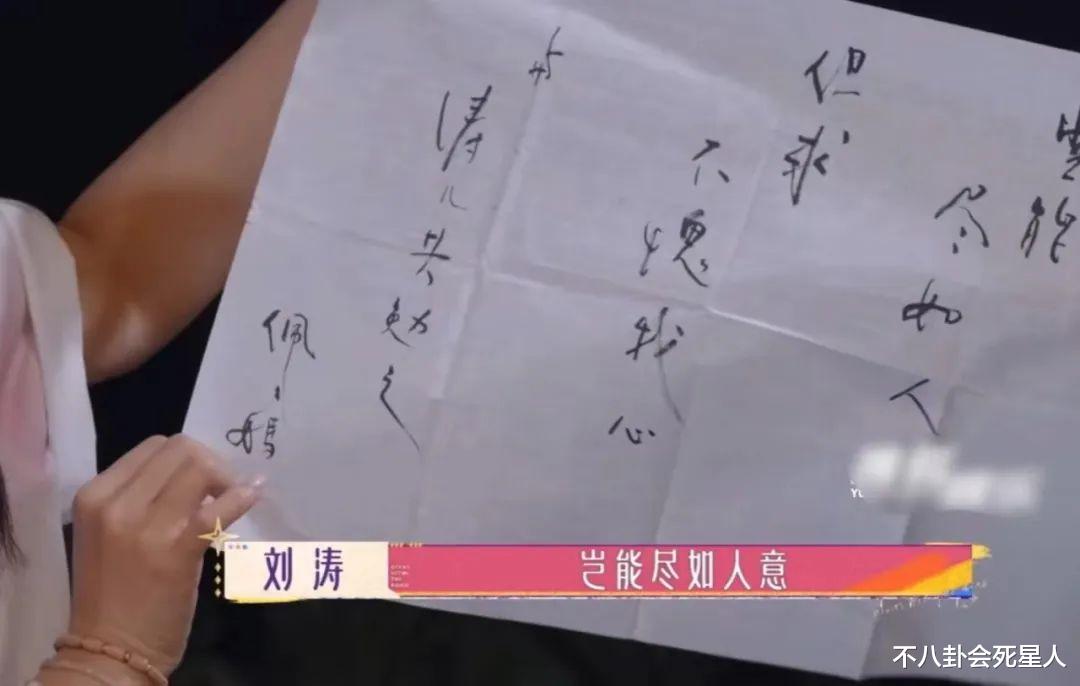 豈能
尽如人
但求
不愧我心
与
涛儿共勉之
佩〻妈
刘涛
岂能尽如人意
不八卦会死星人